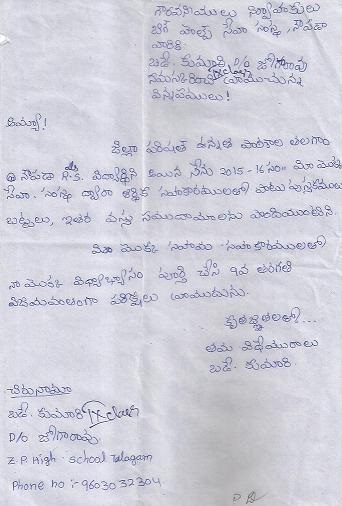 గౌరవనీయులు నిర్వాహకులు
బిగ్ హెల్ప్ సేవా సంస్థ, నౌపడా
వారికి
బడే. కుమారి, D/o జోగారావు
IX class
నమస్కరించి వ్రాయుచున్న
విన్నపములు!
అమ్మా!
జిల్లా పరిషత్ ఉన్నత పాఠశాల తలగాం
నౌపడా R.S. విద్యార్థిని అయిన నేను 2015-16 సం॥ మీ యొక్క
సేవా సంస్థ ద్వారా ఆర్థిక సహకారములతో పాటు పుస్తకములు
బట్టలు, ఇతర వస్తు సముదాయాలను పొందియుంటిని.
మీ యొక్క సహాయ సహకారములతో
నా యొక్క విద్యాభ్యాసం పూర్తి చేసి 9వ తరగతి
విజయవంతంగా పరీక్షలు వ్రాయుదును.
కృతజ్ఞతలతో...
తమ విధేయురాలు
బడే. కుమారి.
చిరునామా
బడే. కుమారి IX class
D/o జోగారావు
Z.P. High. school Talagam
Phone no :- 9603032304.